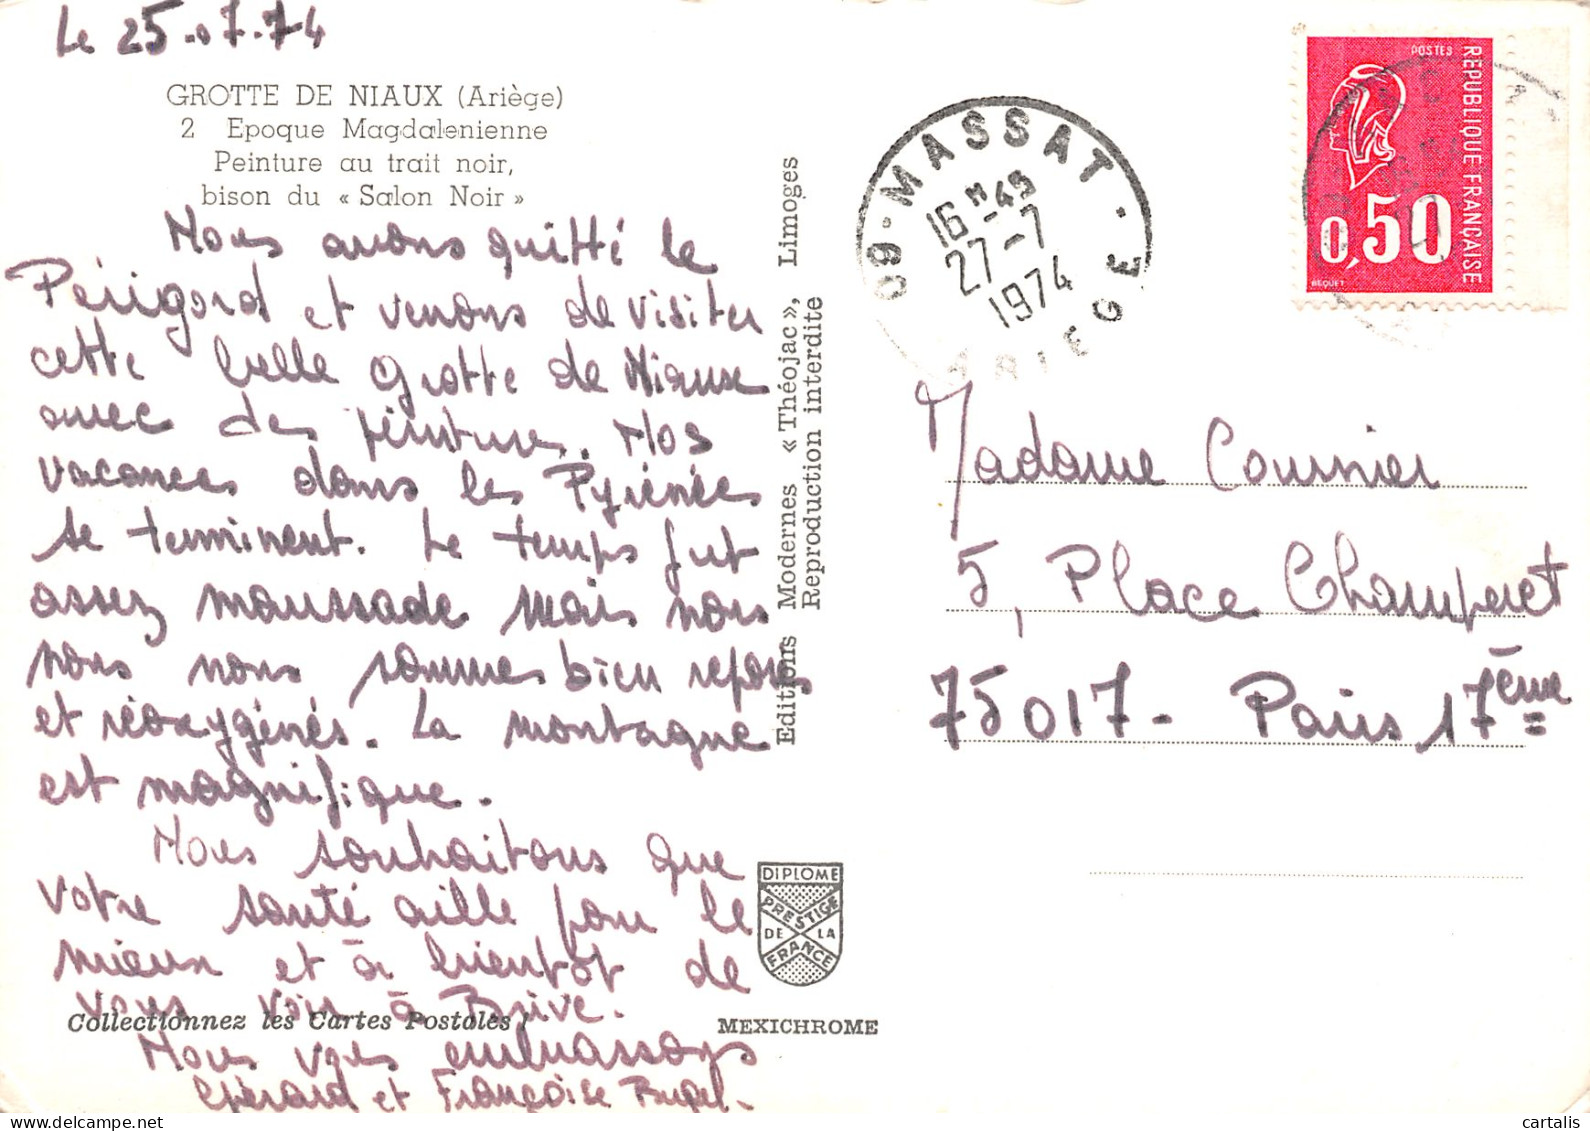 Le 25.07.74
GROTTE DE NIAUX (Ariège)
2 Epoque Magdalenienne
Peinture au trait noir,
bison du « Salon Noir »
Nous avons quitté le
Périgord et venons de visiter
cette belle grotte de Niaux
avec des peintures. Nos
vacances dans les Pyrénées
se terminent. Le temps fut
assez maussade mais nous
nous nous sommes bien reposés
et réoxygénés. La montagne
est magnifique.
Nous souhaitons que
votre santé aille pour le
mieux et à bientôt de
vous voir à Brive.
Collectionnez les Cartes Postales !
Nous vous embrassons
Gérard et Françoise
Editions Modernes « Théojac », Limoges
Reproduction interdite
DIPLOME
PRESTIGE
DE LA
FRANCE
MEXICHROME
09 - MASSAT -
16H-45
27-7
1974
ARIEGE
POSTES
REPUBLIQUE FRANÇAISE
0,50
BEQUET
Madame Cournier
5, Place Champerret
75017 - Paris 17ème
cartalis